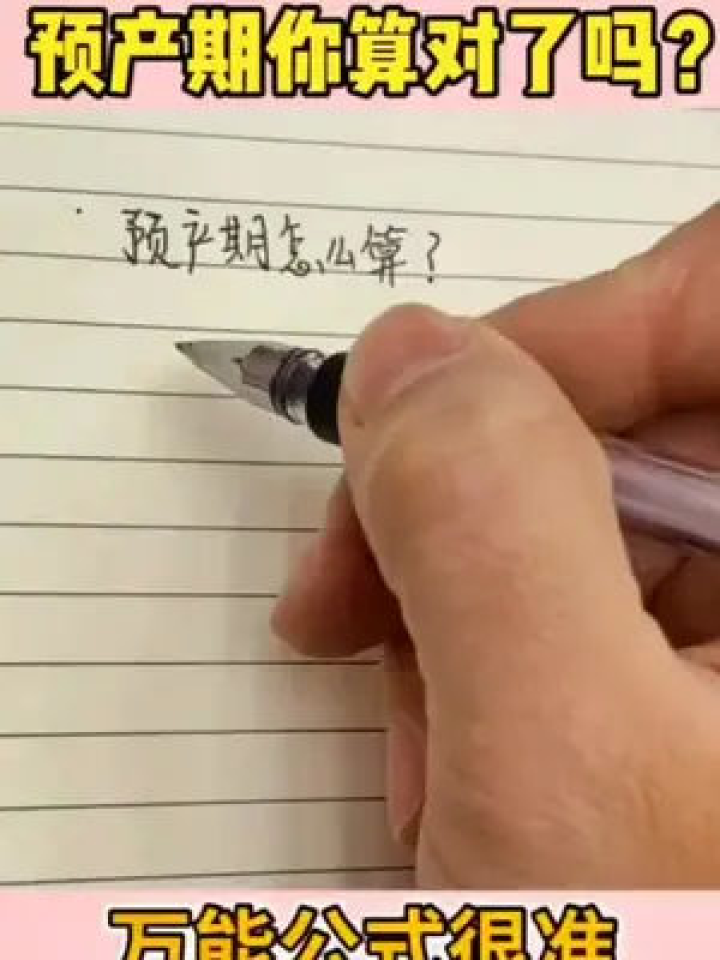 预产期你算对了吗?
预产期怎么算?
万能公式很准